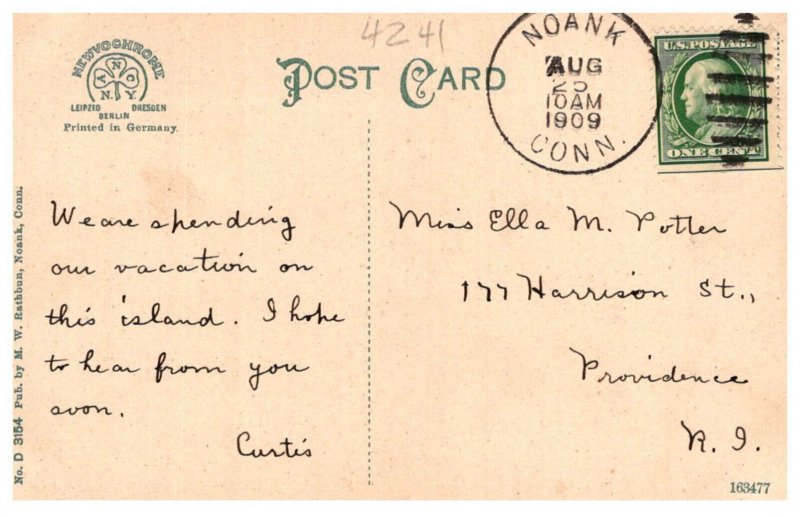 4241
NEWVOCHROME
A N C O
N.Y.
LEIPZIG DRESDEN
BERLIN
Printed in Germany.
POST CARD
NOANK
AUG
25
10AM
1909
CONN.
U.S. POSTAGE
ONE CENT
We are spending
our vacation on
this island. I hope
to hear from you
soon.
Curtis
Miss Ella M. Potter
177 Harrison St.,
Providence
R. I.
No. D 3154 Pub. by M. W. Rathbun, Noank, Conn.
163477